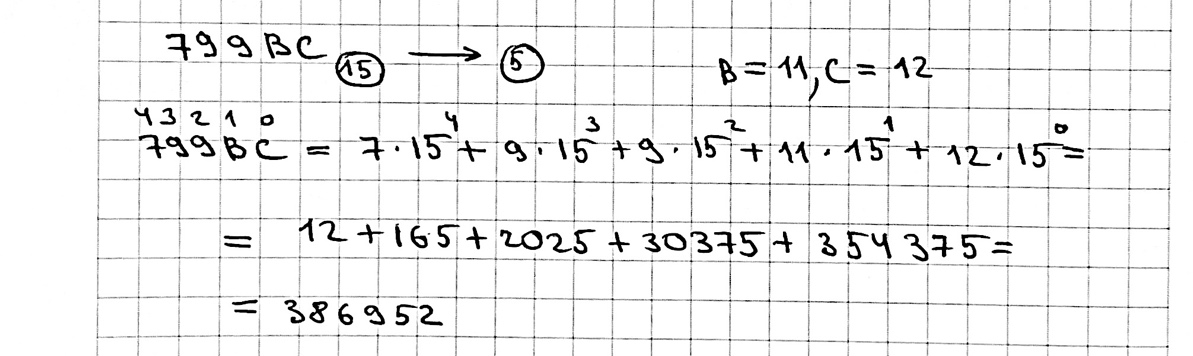 799BC (15) → (5) B = 11, C = 12
4 3 2 1 0
799BC = 7·15⁴ + 9·15³ + 9·15² + 11·15¹ + 12·15⁰ =
= 12 + 165 + 2025 + 30375 + 354375 =
= 386952